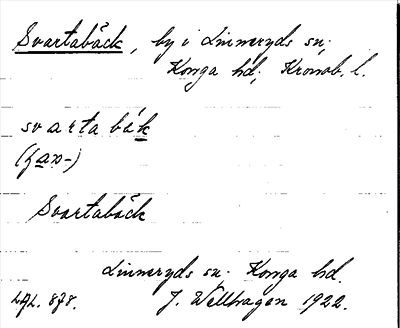 Svartabäck, by i Linneryds sn,
Konga hd, Kronob. l.
svarta bäk
Svartabäck
Linneryds sn. Konga hd.
J. Wellhagen 1922.